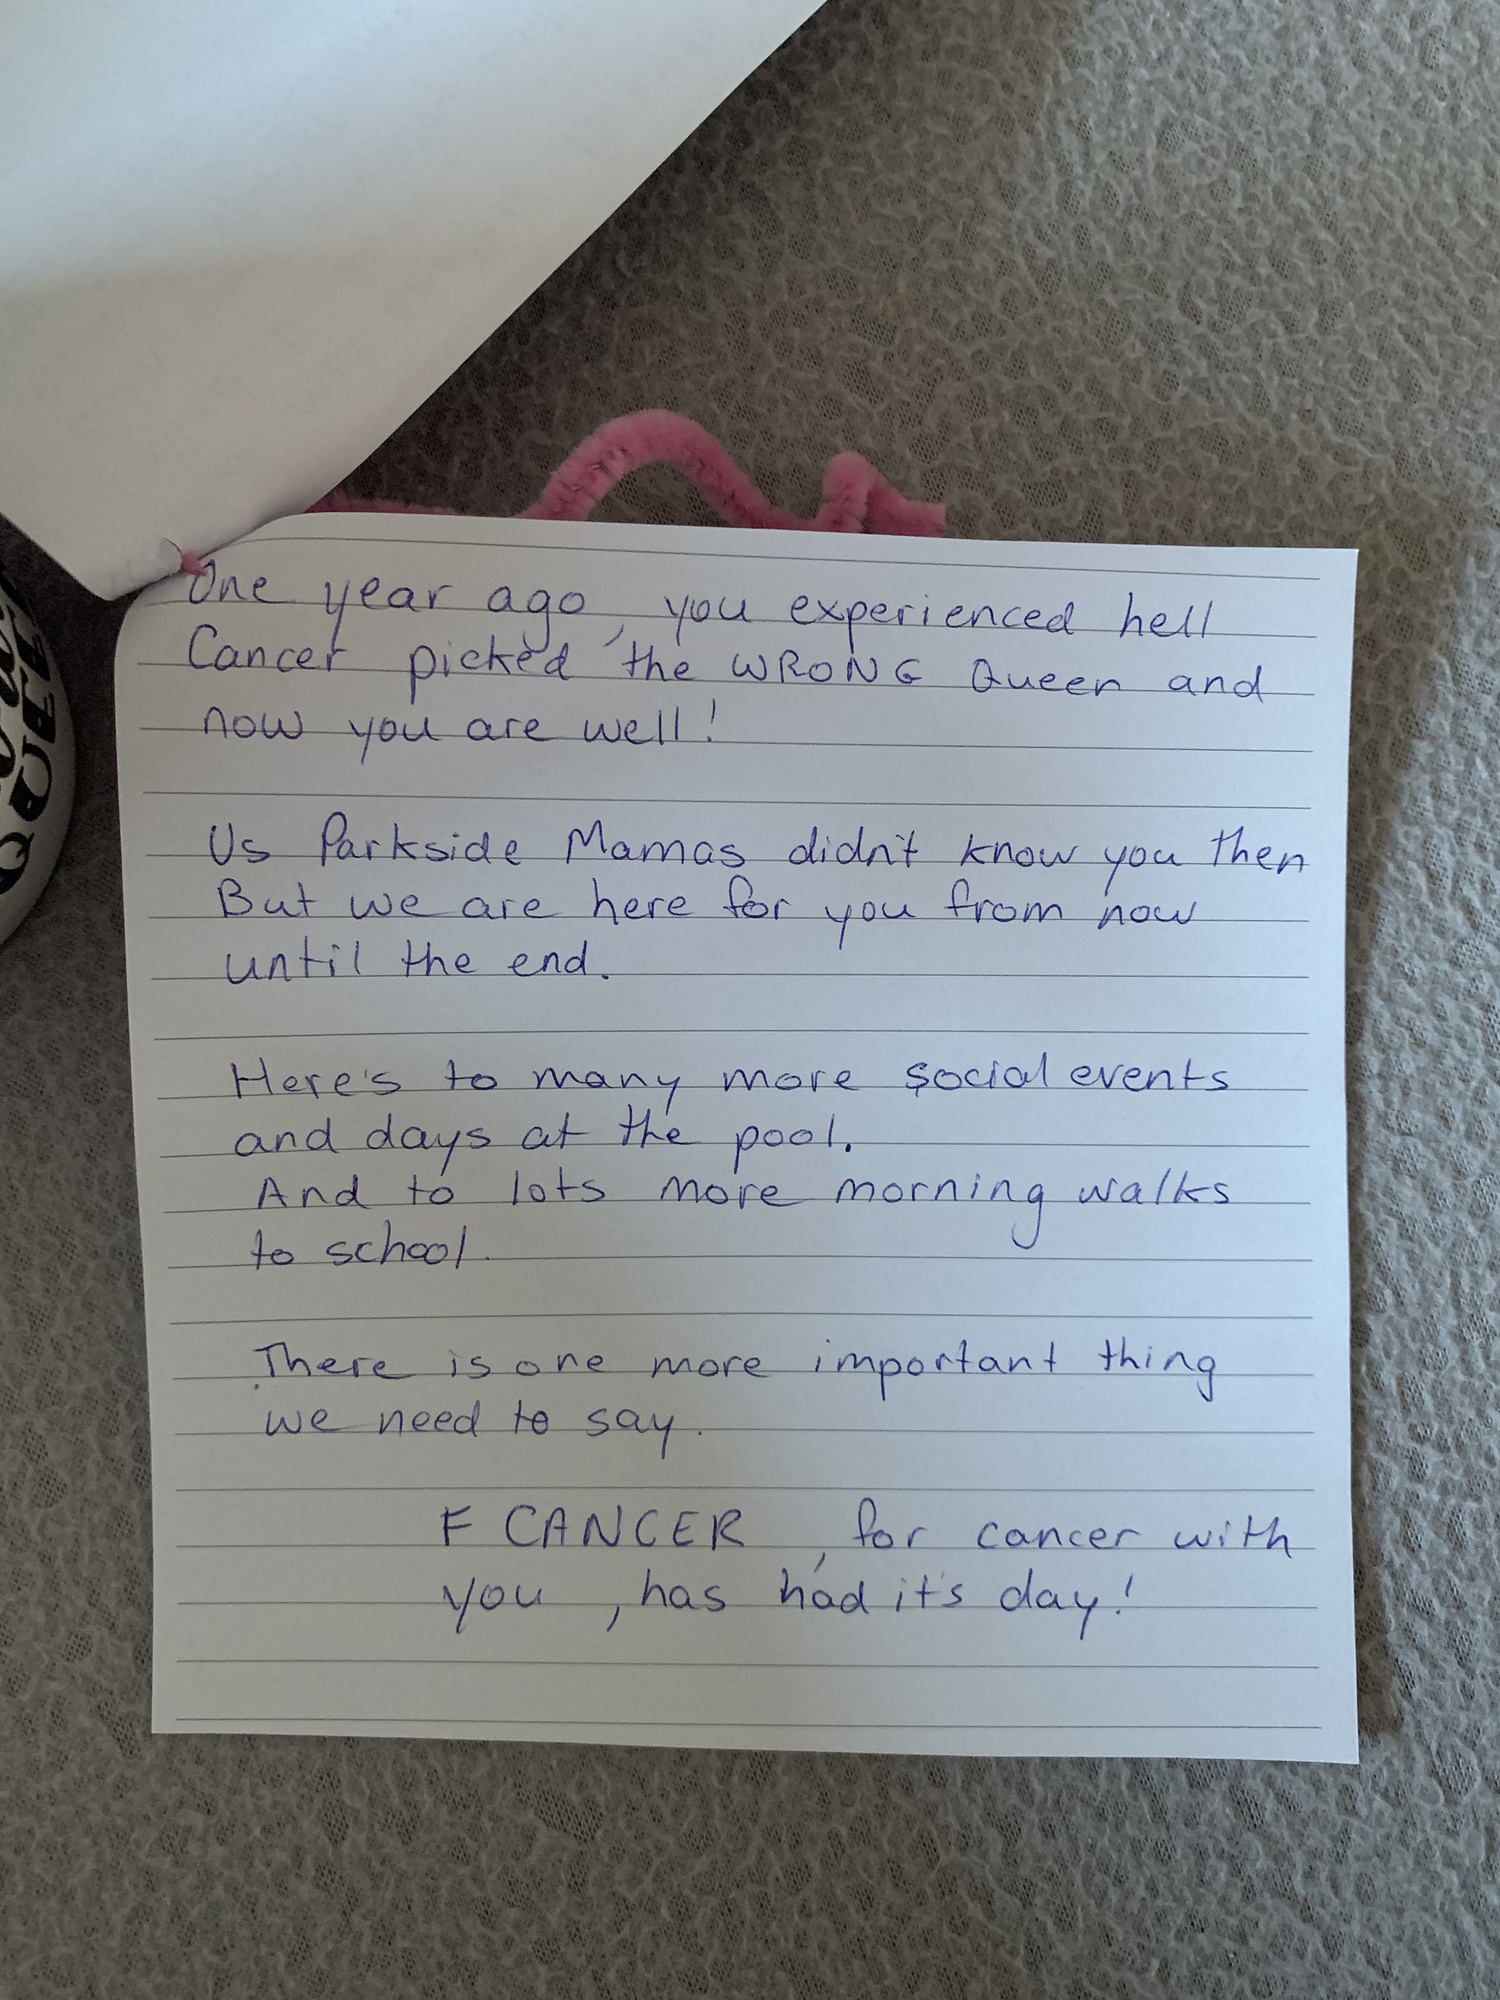 One year ago, you experienced hell
Cancer picked the WRONG Queen and
now you are well!
Us Parkside Mamas didn't know you then
But we are here for you from now
until the end.
Here's to many more social events
and days at the pool.
And to lots more morning walks
to school.
There is one more important thing
we need to say.
F CANCER, for cancer with
you, has had it's day!